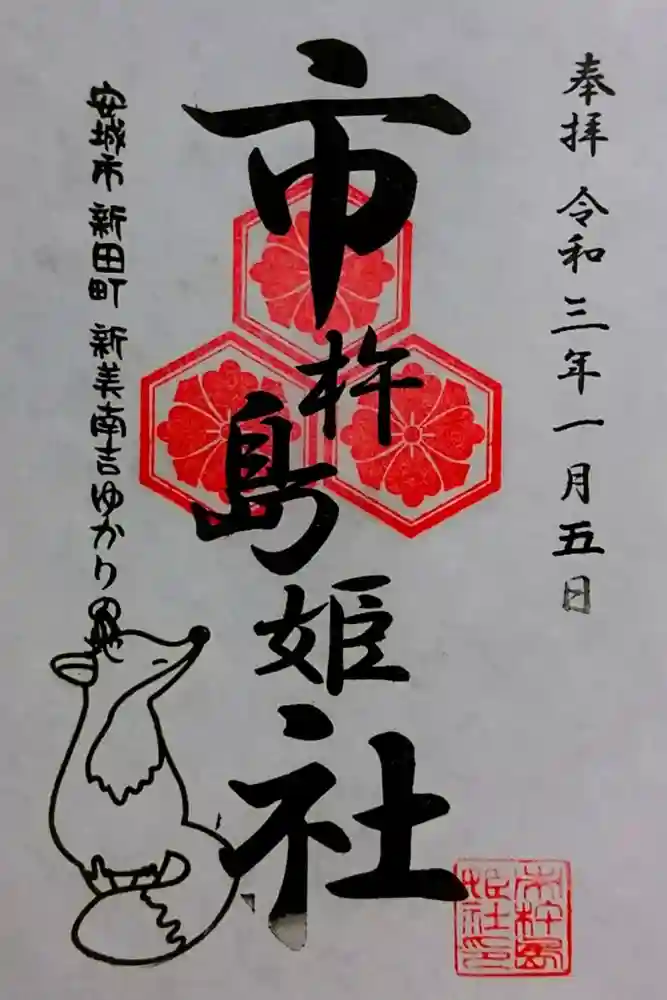 奉拝 令和三年一月五日
市杵島姫社
安城市 新田町 新美南吉ゆかりの地
市杵島
姫社印